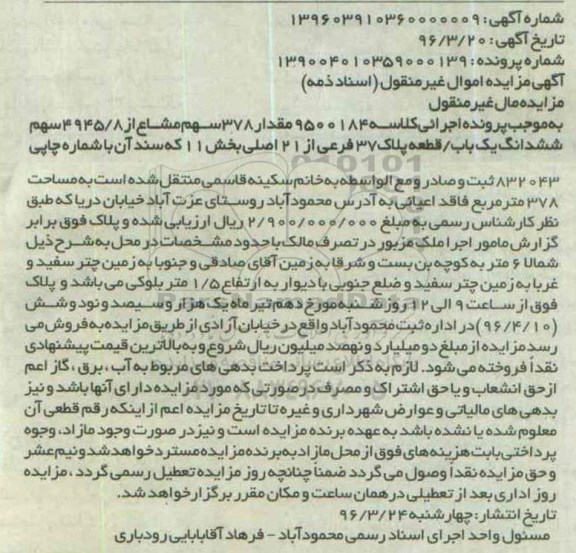 شماره آگهی: ۱۳۹۶۰۳۹۱۰۳۶۰۰۰۰۰۰۹
تاریخ آگهی: ۹۶/۳/۲۰
شماره پرونده: ۱۳۹۰۰۴۰۱۰۳۵۹۰۰۰۱۳۹
آگهی مزایده اموال غیر منقول (اسناد ذمه)
مزایده مال غیر منقول
به موجب پرونده اجرائی کلاسه ۹۵۰۰۱۸۴ مقدار ۳۷۸ سهم مشاع از ۴۹۴۵/۸ سهم
ششدانگ یک باب/قطعه پلاک ۳۷ فرعی از ۲۱ اصلی بخش ۱۱ که سند آن با شماره چاپی
۸۳۲۰۴۳ ثبت و صادر و مع الواسطه به خانم سکینه قاسمی منتقل شده است به مساحت
۳۷۸ متر مربع فاقد اعیانی به آدرس محمودآباد روستای عزت آباد خیابان دریا که طبق
نظر کارشناس رسمی به مبلغ ۲/۹۰۰/۰۰۰/۰۰۰ ریال ارزیابی شده و پلاک فوق برابر
گزارش مامور اجرا ملک مزبور در تصرف مالک با حدود مشخصات در محل به شرح ذیل
شمالا ۶ متر به کوچه بن بست و شرقا به زمین آقای صادقی و جنوبا به زمین چتر سفید و
غربا به زمین چتر سفید و ضلع جنوبی با دیوار به ارتفاع ۱/۵ متر بلوکی می باشد و پلاک
فوق از ساعت ۹ الی ۱۲ روز شنبه مورخ دهم تیر ماه یک هزار و سیصد و نود و شش
(۹۶/۴/۱۰) در اداره ثبت محمودآباد واقع در خیابان آزادی از طریق مزایده به فروش می
رسد مزایده از مبلغ دو میلیارد و نهصد میلیون ریال شروع و به بالاترین قیمت پیشنهادی
نقداً فروخته می شود. لازم به ذکر است پرداخت بدهی های مربوط به آب، برق، گاز اعم
از حق انشعاب و یا حق اشتراک و مصرف در صورتی که مورد مزایده دارای آنها باشد و نیز
بدهی های مالیاتی و عوارض شهرداری و غیره تا تاریخ مزایده اعم از اینکه رقم قطعی آن
معلوم شده یا نشده باشد به عهده برنده مزایده است و نیز در صورت وجود مازاد، وجوه
پرداختی بابت هزینه های فوق از محل مازاد به برنده مزایده مسترد خواهد شد و نیم عشر
و حق مزایده نقداً وصول می گردد ضمناً چنانچه روز مزایده تعطیل رسمی گردد، مزایده
روز اداری بعد از تعطیلی در همان ساعت و مکان مقرر برگزار خواهد شد.
تاریخ انتشار: چهارشنبه ۹۶/۳/۲۴
مسئول واحد اجرای اسناد رسمی محمودآباد - فرهاد آقابابایی رودباری